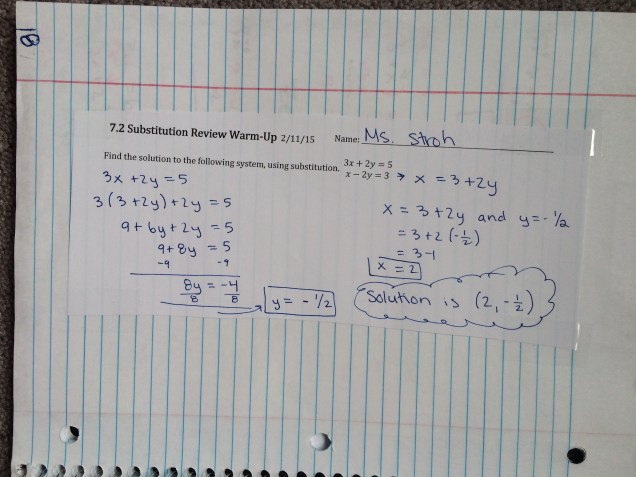 18
7.2 Substitution Review Warm-Up 2/11/15 Name: Ms. Stroh
Find the solution to the following system, using substitution.
3x + 2y = 5
x − 2y = 3 → x = 3+2y
3x + 2y = 5
3(3+2y)+2y = 5
9+6y+2y = 5
9+8y = 5
-9 -9
8y = -4
8 8
y = - 1/2
x = 3+2y and y = - 1/2
= 3+2(-1/2)
= 3-1
x = 2
Solution is (2, -1/2)